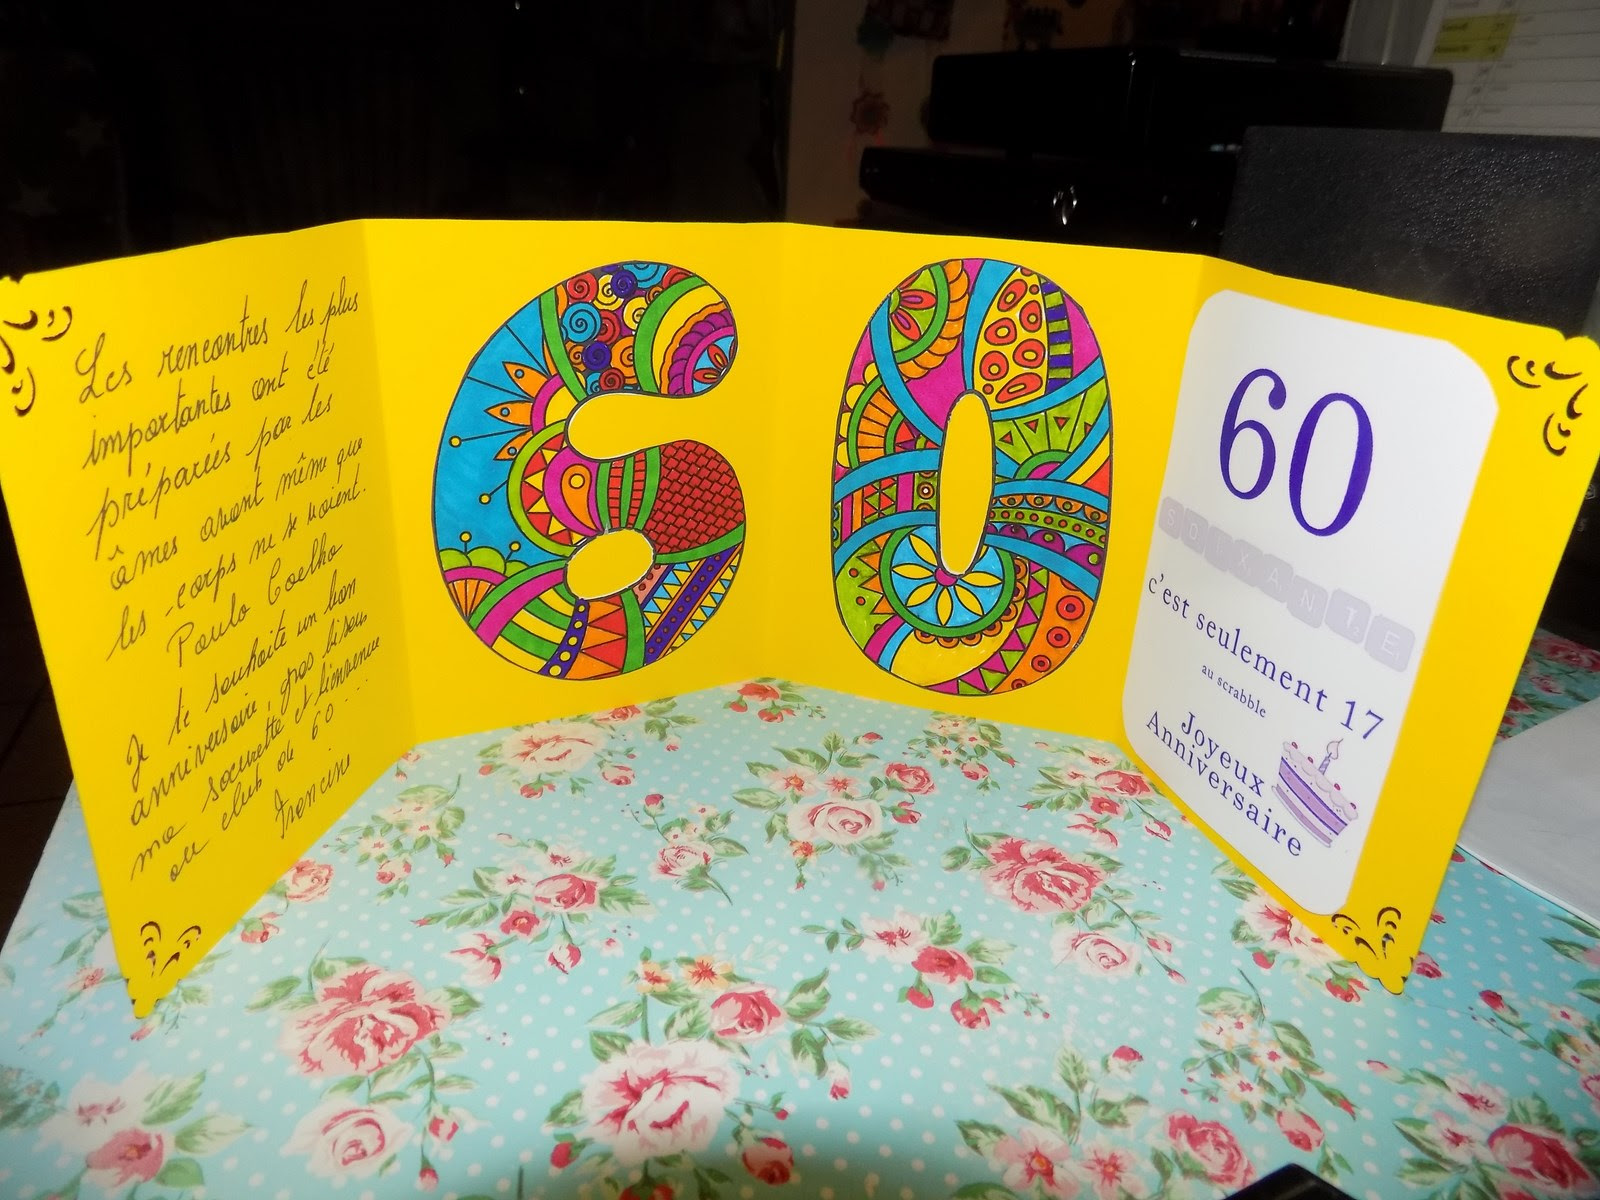 Les rencontres les plus
importantes ont été
préparées par les
âmes avant même que
les corps ne se voient.
Paulo Coelho
Je te souhaite un bon
anniversaire, gros bisous
ma soeurette et bienvenue
au club de 60...
Francine
60
60
SOIXANTE
c'est seulement 17
au scrabble
Joyeux
Anniversaire